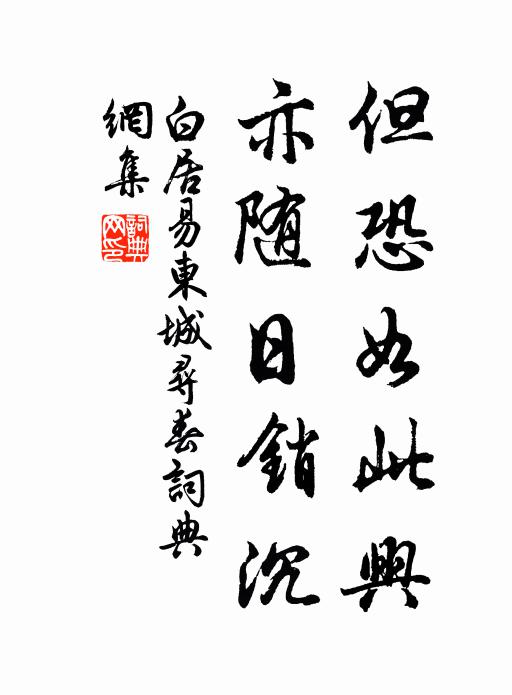 但恐如此興
亦随日銷沉
白居易東城尋春詞典
網集
詞典
网印